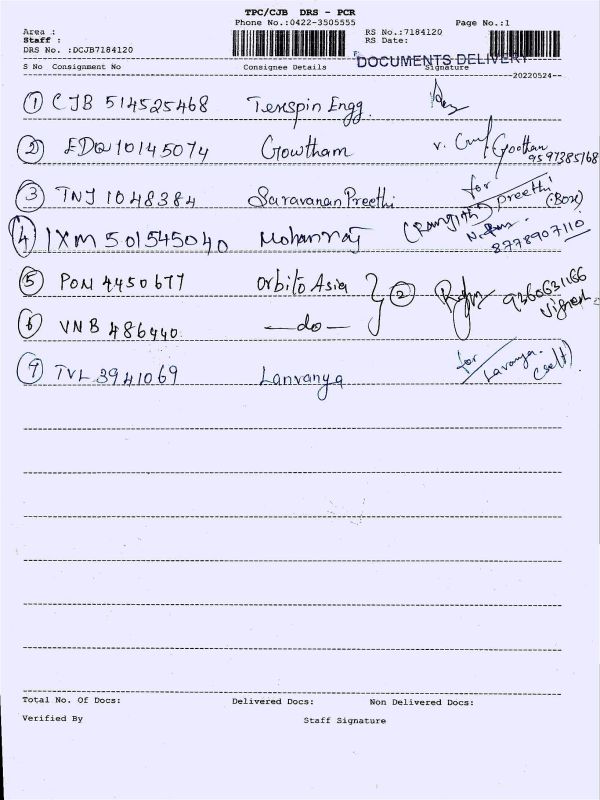 TPC/CJB DRS - PCR
Phone No.:0422-3505555 Page No.:1
Area :
Staff :
DRS No. :DCJB7184120
RS No.:7184120
RS Date:
DOCUMENTS DELIVERY
S No Consignment No Consignee Details Signature
20220524
1 CJB 514525468 Texspin Engg.
2 EDQ10145074 Gowtham V. Gowthan 9597385168
3 TNJ 1048384 Saravanan Preethi for Preethi (Box)
4 IXM 501545040 Mohanraj (Ranjith) 8778907110
5 PON 4450677 Orbito Asia } 2 9360631166 Vignesh
6 VNB 486440 —do—
7 TVL 3941069 Lanvanya for Lavanya. (self)
Total No. Of Docs: Delivered Docs: Non Delivered Docs:
Verified By Staff Signature